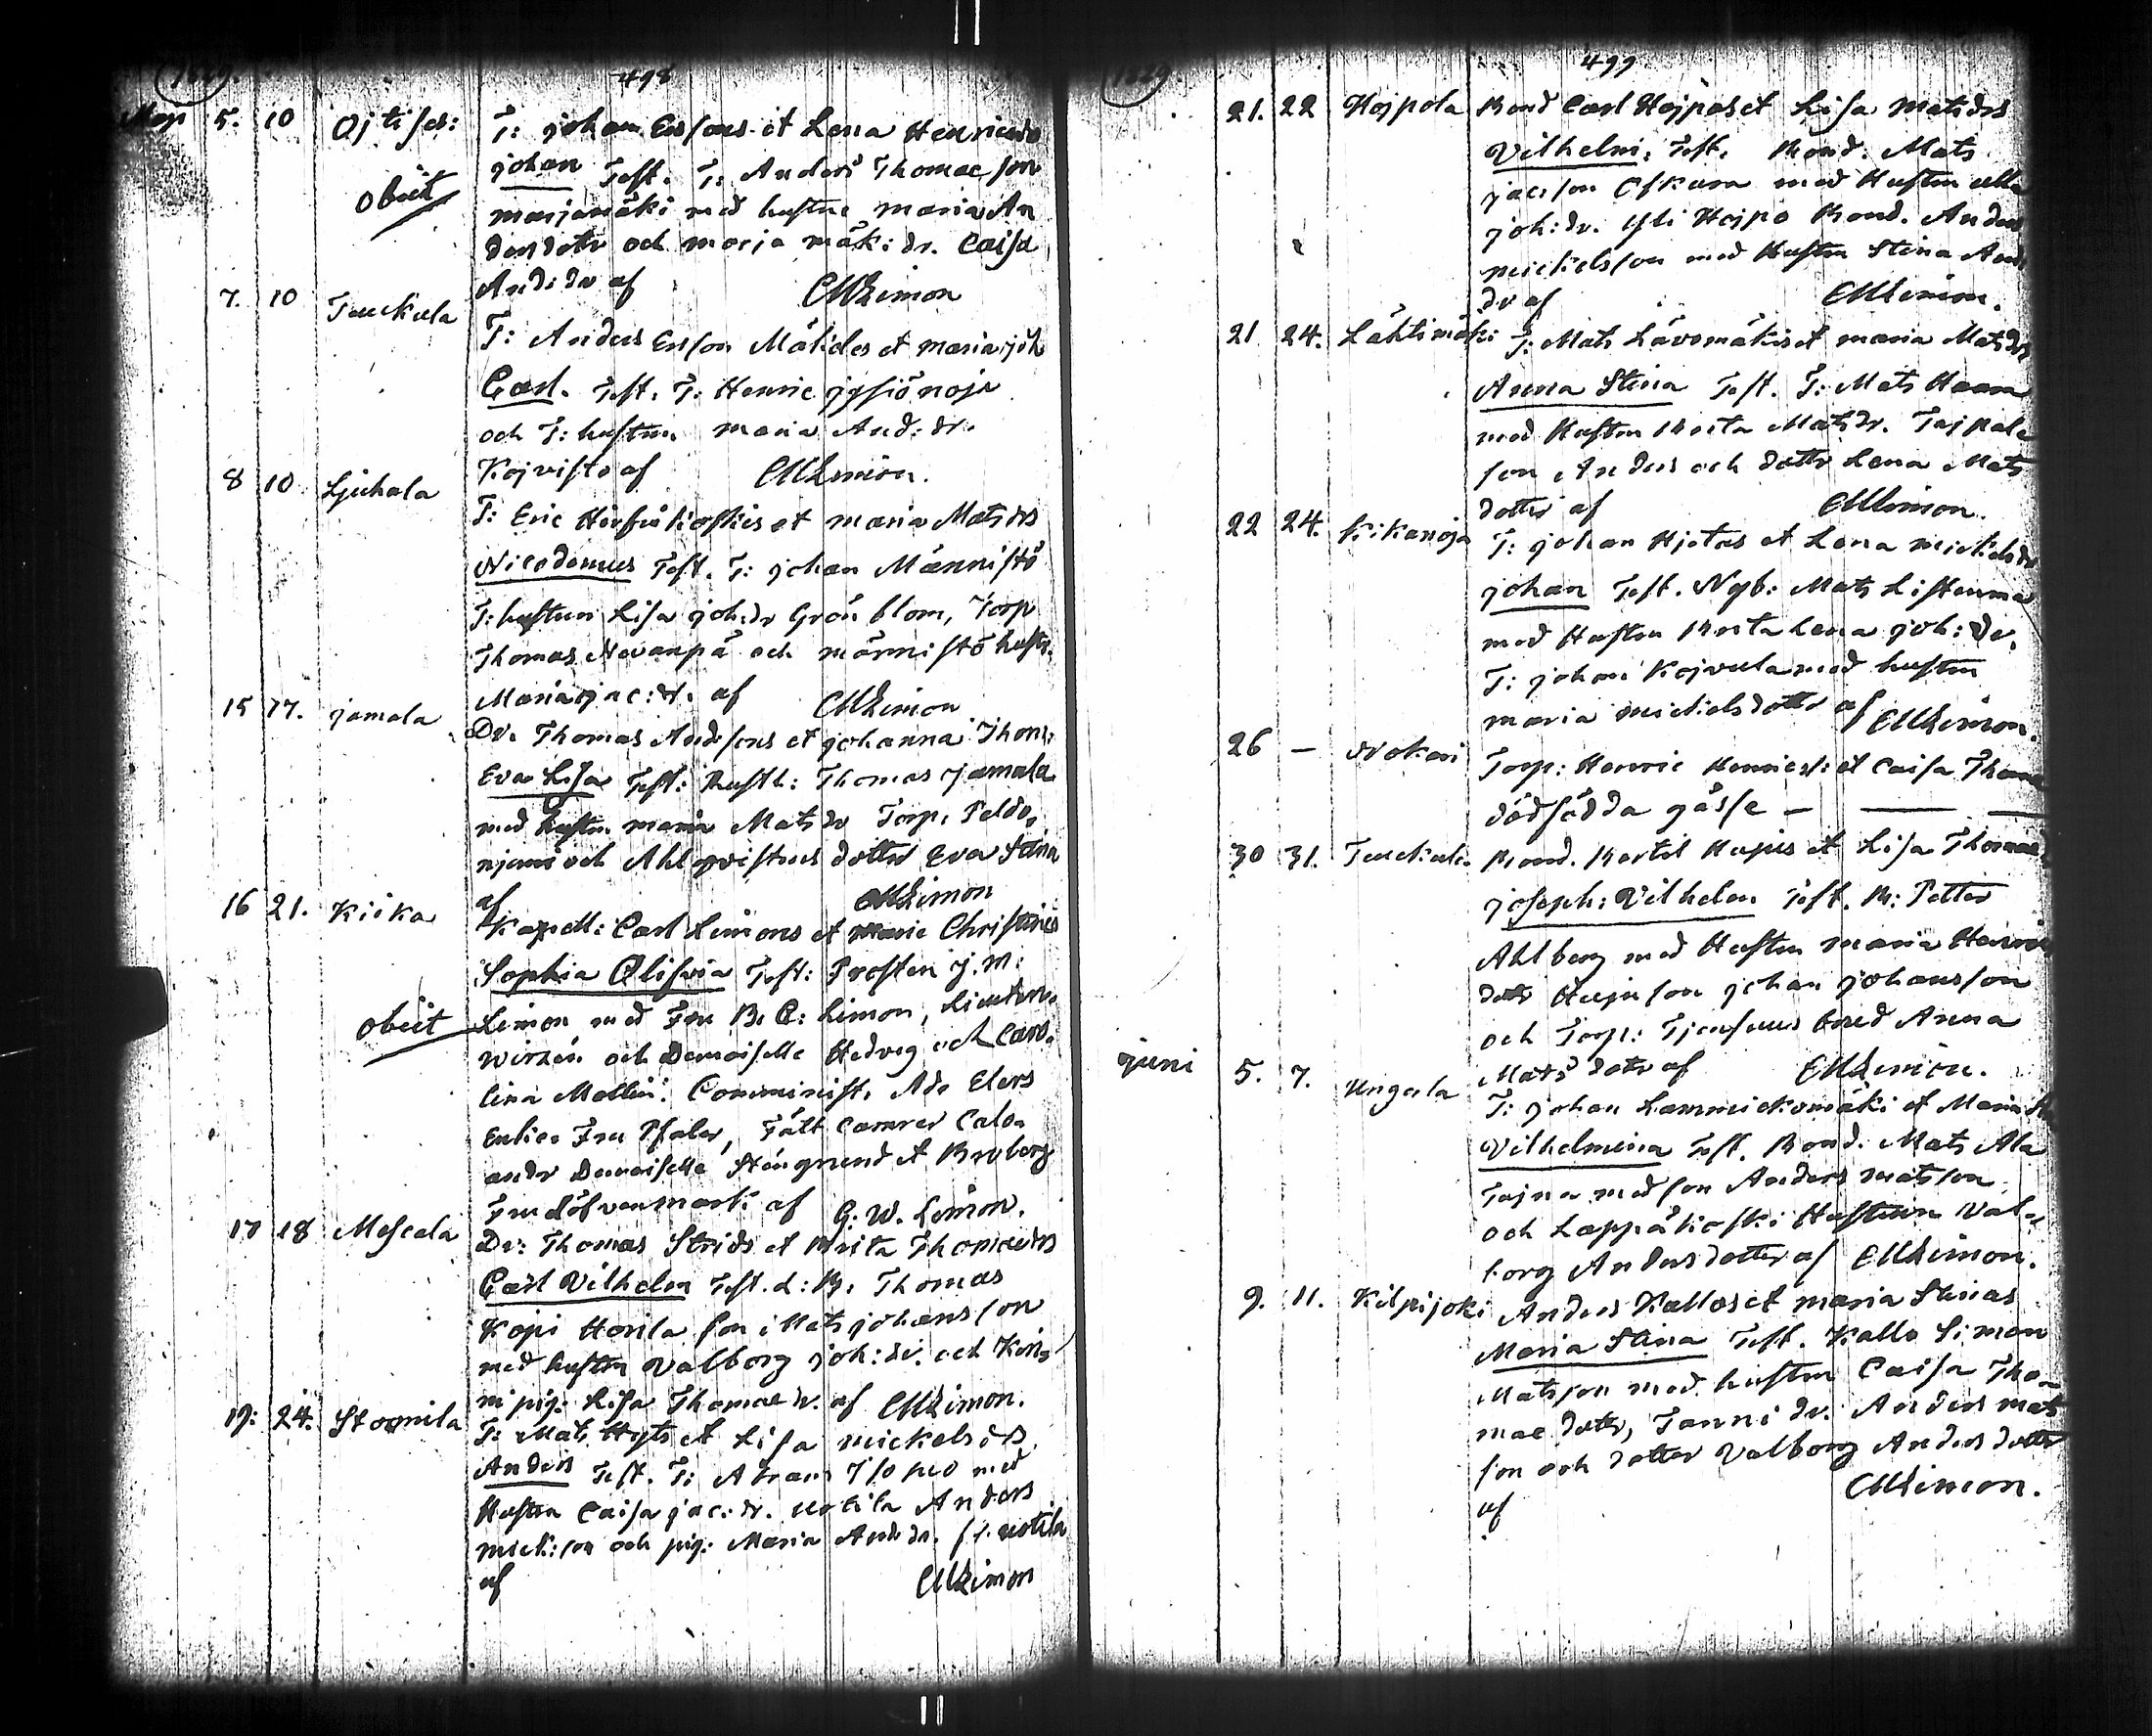 498
Maji 5. 10 Ojtiser: T: johan Ersons et Lena Henricsdr
obiit johan Test. T: Anders Thomae son
marjamäki med hustru maria An
dersdotr och marja mäk: dr. Caisa
And: dr af CMLimon
7. 10 Teuckula T: Anders Erson Mäkides et maria joh
Carl. Test. T: Henric
och T: hustrun maria And: dr.
Kojvisto af CMLimon.
8 10 T: Eric et maria Matsdrs
Nicodemus Test. T: johan Männistö
T: hustrun Lisa joh:dr Grönblom, Torp
Thomas Nevanpä och männistö hustr.
Maria jac: dr. af CMLimon
15 17. jamala Dr. Thomas Andersons et johanna Thom:
Eva Lisa Test: Rusth: Thomas jamala
med hustru maria Mats dr Torp. Peldo,
och Ahlqvistnes dotter Eva Stina
af CMLimon
16 21. Kiika Kapell: Carl Limons et Marie Christines
Sophia Olivia Test: Prosten J. M:
obiit Limon med Fru B. C: Limon, Lieuten:
Wirzén och Demoiselle Hedvig och Caro,
lina Mollin: Comminist. Ad. Elers
Enkie Fru Pfaler, Fält Camrer Calo,
andr Demoiselle Stengrund et Broberg
Fru Löfvenmark af G. W. Limon.
17 18 Mescala Dr: Thomas Strids et Brita Thomaedrs
Carl Vilhelm Test. d: B. Thomas
Kopi Horila son Mats johansson
med hustru Valborg joh: dr. och Kon,
ni pig: Lisa Thomae dr. af CMLimon.
19: 24. Stormila T: Mats Hyts et Lisa mickels drs
Anders Test. T: Abram med
Hustru Caisa jac: dr. notila Anders
mick: son och pig: Maria And: dr. fr. notila
af CMLimon
499
21. 22 Hojpola Bond Carl Hojpas et Lisa Matsdrs
Vilhelm. Test. Bond. Mats
jacson med Hustru ulla
joh: dr. yli Hojpo Bond. Anders
mickelsson med Hustru Stina And:
dr af CMLimon.
21 24. Lähtimäki T: Mats Lävomäkis et maria Matsdrs
Anna Stina Test. T: Mats Haara
med Hustru Brita Matsdr. Tajpale
son Anders och dottr Lena Mats
dotter af CMLimon.
22 24. Kikanoja T: johan Hjetas et Lena mickelsdr
johan Test. Nyb: Mats Listenma
med Hustru Brita Lena joh: dr.
T: johan Kojvula med hustru
maria mickelsdotter af CMLimon.
26 — Nokari Torp: Henric Henrics: et Caisa Thom
dödfödda gåsse —
30 31. Teuckula Bond. Bertil Hujus et Lisa Thomae
joseph: Vilhelm Test. B: Petter
Ahlberg med Hustru maria Henric
dotr Hujus son johan johansson
och Torp: Anna
Mats dotr af CMLimon.
juni 5. 7. Ungala T: johan Lammickomäki et Maria
Vilhelmina Test. Bond. Mats Ala
Tajna med son Anders matsson
och Lappäkoski Hustrun Val,
borg Andersdotter af CMLimon.
9. 11. Kilpijoki Anders Kallas et maria Stinas
Maria Stina Test. Kallo Simon
Matsson med hustru Caisa Tho,
mae dottr, Tanni dr. Anders mats
son och dotter Valborg Anders dotter
af CMLimon.